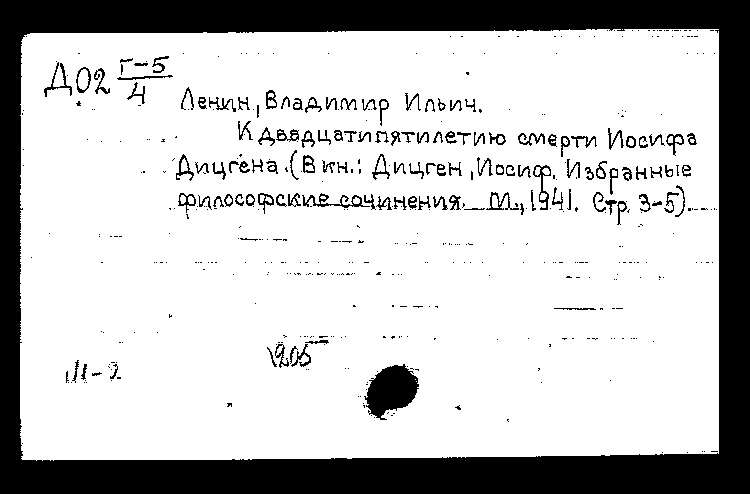 Д02 Г-5/4
Ленин, Владимир Ильич.
К двадцатипятилетию смерти Иосифа
Дицгена. (В кн.: Дицген, Иосиф. Избранные
философские сочинения. М., 1941. Стр. 3-5).
1205
III-2